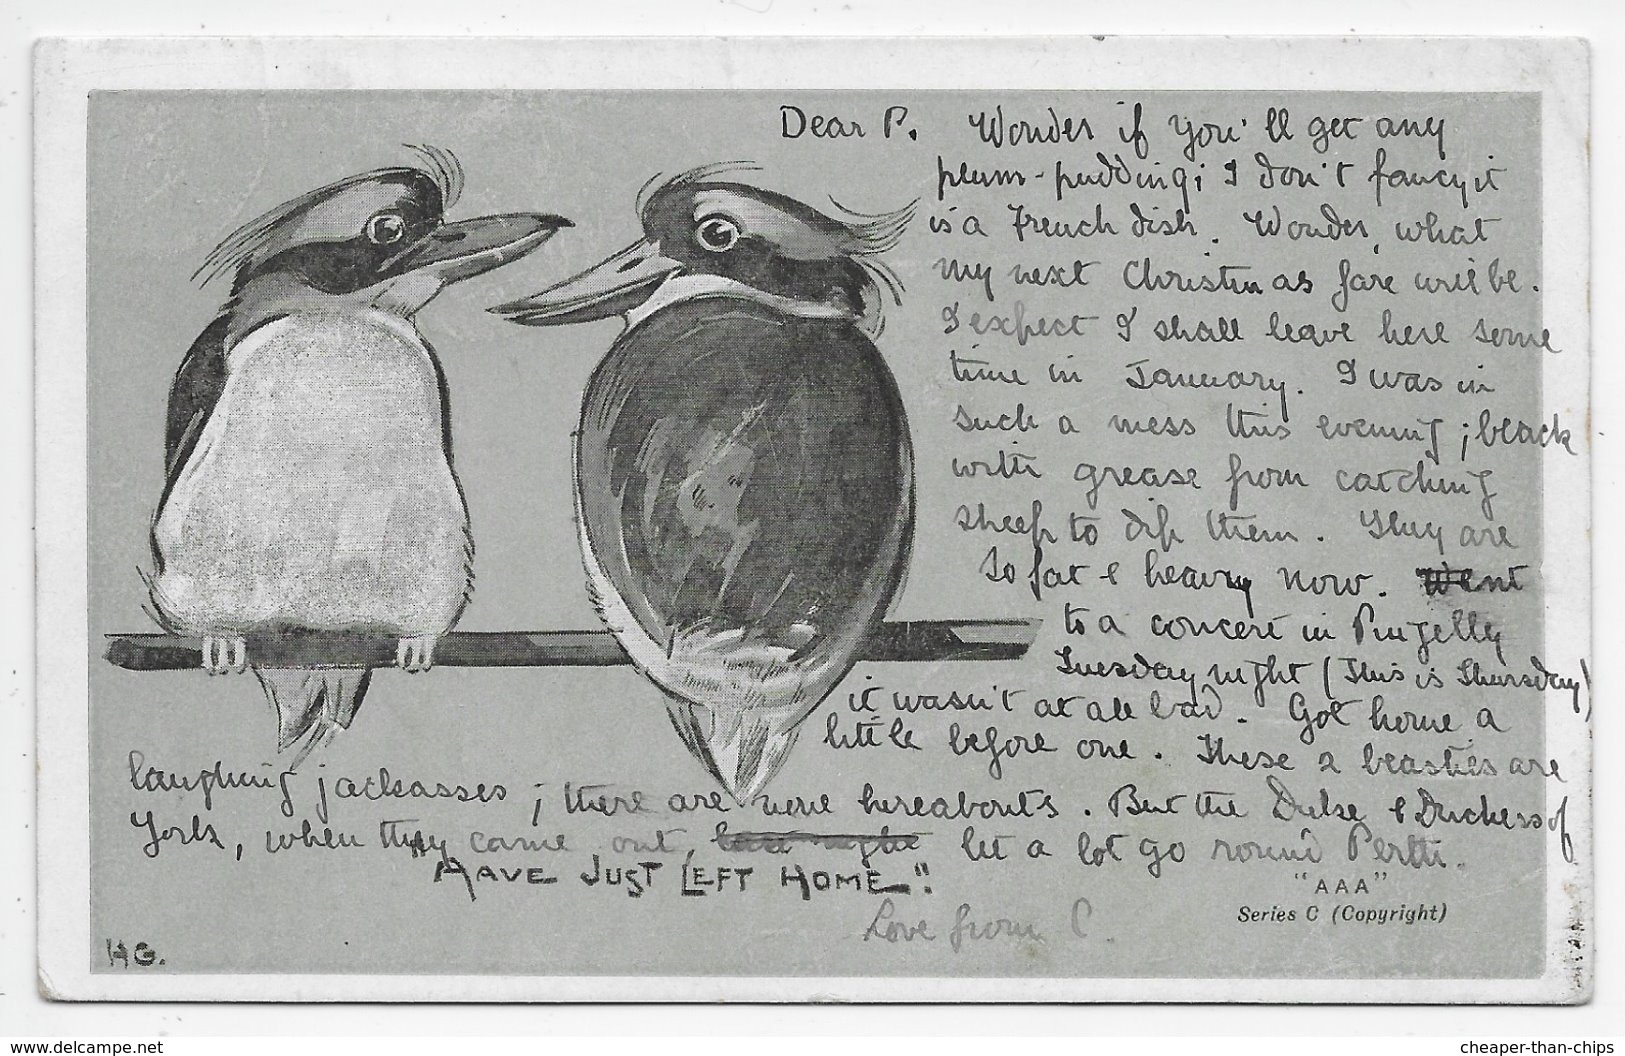 Dear P. Wonder if you'll get any
plum-pudding; I don't fancy it
is a French dish. Wonder, what
my next Christmas fare will be.
I expect I shall leave here some
time in January. I was in
such a mess this evening; black
with grease from catching
sheep to dip them. They are
so fat & heavy now. Went
to a concert in Pingelly
Tuesday night (This is Thursday)
it wasn't at all bad. Got home a
little before one. These 2 beasties are
laughing jackasses; there are none hereabouts. But the Duke & Duchess of
York, when they came out, last night let a lot go round Perth.
"HAVE JUST LEFT HOME".
"AAA"
Series C (Copyright)
Love from C.
HG.
www.delcampe.net
cheaper-than-chips